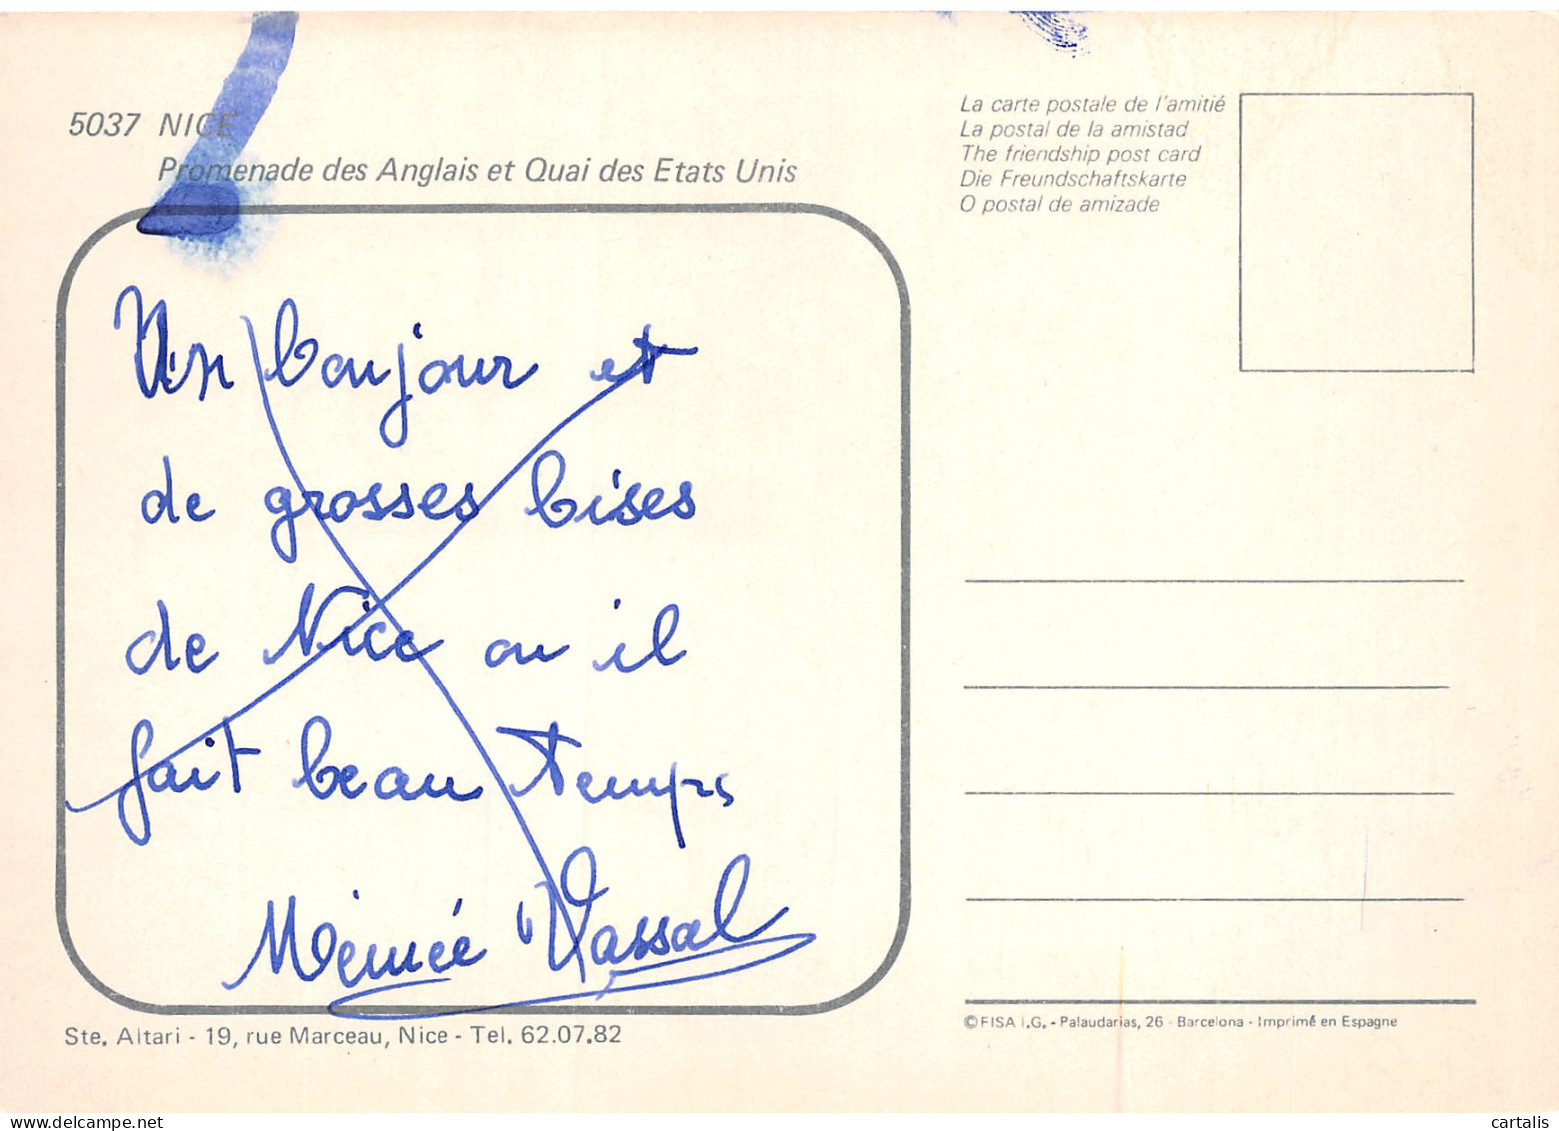 5037 NICE
Promenade des Anglais et Quai des Etats Unis
La carte postale de l'amitié
La postal de la amistad
The friendship post card
Die Freundschaftskarte
O postal de amizade
Un bonjour et
de grosses bises
de Nice ou il
fait beau temps
Mémée Vassal
Ste. Altari - 19, rue Marceau, Nice - Tel. 62.07.82
© FISA I.G. - Palaudarias, 26 - Barcelona - Imprimé en Espagne
delcampe.net
cartalis